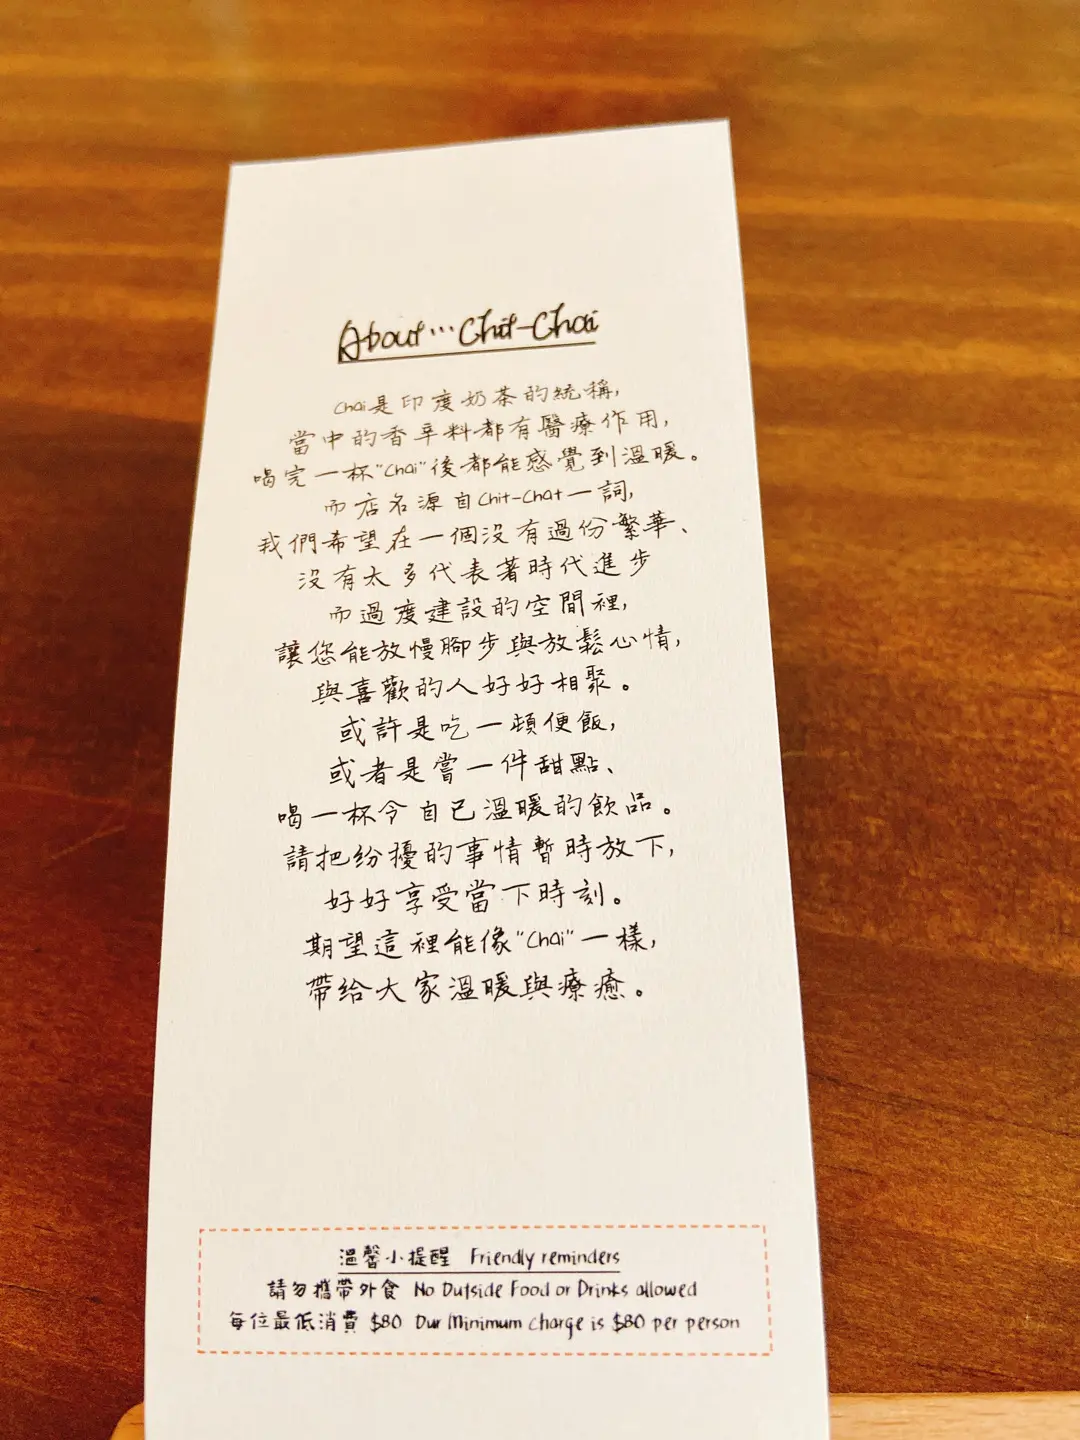 About...Chit-Chai
Chai是印度奶茶的統稱,
當中的香辛料都有醫療作用,
喝完一杯"Chai"後都能感覺到溫暖。
而店名源自Chit-Chat一詞,
我們希望在一個沒有過份繁華、
沒有太多代表著時代進步
而過度建設的空間裡,
讓您能放慢腳步與放鬆心情,
與喜歡的人好好相聚。
或許是吃一頓便飯,
或者是嘗一件甜點、
喝一杯令自己溫暖的飲品。
請把紛擾的事情暫時放下,
好好享受當下時刻。
期望這裡能像"Chai"一樣,
帶給大家溫暖與療癒。
溫馨小提醒 Friendly reminders
請勿攜帶外食 No Outside Food or Drinks allowed
每位最低消費 $80 Our Minimum charge is $80 per person